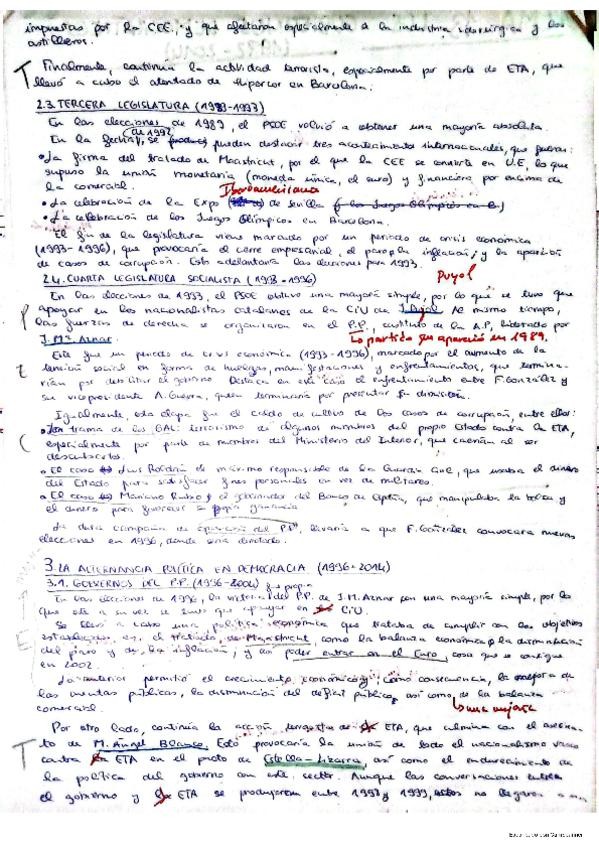 impuestas por la CEE, y que afectaron especialmente a la industria siderúrgica y los
astilleros.
Finalmente, continúa la actividad terrorista, especialmente por parte de ETA, que
llevó a cabo el atentado de Hipercor en Barcelona.
2.3. TERCERA LEGISLATURA (1989-1993)
En las elecciones de 1989, el PSOE volvió a obtener una mayoría absoluta.
En la fecha de 1992, se pueden destacar tres acontecimientos internacionales, que fueron:
• La firma del tratado de Maastricht, por el que la CEE se convierte en U.E, lo que
supuso la unión monetaria (moneda única, el euro) y financiera por encima de
la comercial. Iberoamericana
• La celebración de la Expo de Sevilla (y los Juegos Olímpicos en B.)
• La celebración de los Juegos Olímpicos en Barcelona.
El fin de la legislatura viene marcado por un periodo de crisis económica
(1993-1996), que provocaría el cierre empresarial, el paro, la inflación, y la aparición
de casos de corrupción. Esto adelantaría las elecciones para 1993.
2.4. CUARTA LEGISLATURA SOCIALISTA (1993-1996) Puyol
En las elecciones de 1993, el PSOE obtuvo una mayoría simple, por lo que se tuvo que
apoyar en los nacionalistas catalanes de CiU de J. Pujol. Al mismo tiempo,
las fuerzas de derecha se organizaron en el P.P., sustituto de la A.P, liderado por
J. Mª Aznar. Lo partido que apareció en 1989.
Este fue un periodo de crisis económica (1993-1996), marcado por el aumento de la
tensión social en forma de huelgas, manifestaciones y enfrentamientos, que termina-
rían por debilitar el gobierno. Destaca en este caso el enfrentamiento entre F. González y
su vicepresidente A. Guerra, quien terminaría por presentar su dimisión.
Igualmente, esta etapa fue el caldo de cultivo de los casos de corrupción, entre ellos:
• La trama de los GAL: terrorismo de algunos miembros del propio Estado contra la ETA,
especialmente por parte de miembros del Ministerio del Interior, que caerían al ser
descubiertos.
• El caso Luis Roldán de máximo responsable de la Guardia Civil, que usaba el dinero
del Estado para satisfacer fines personales en vez de militares.
• El caso Mariano Rubio, el gobernador del Banco de España, que manipulaba la bolsa y
el dinero para favorecer su propia ganancia
La dura campaña de oposición del PP, llevaría a que F. González convocara nuevas
elecciones en 1996, donde sería derrotado.
3. LA ALTERNANCIA POLÍTICA EN DEMOCRACIA (1996-2014)
3.1. GOBIERNOS DEL P.P. (1996-2004)
En las elecciones de 1996, la victoria fue del P.P. de J.M Aznar con una mayoría simple, por lo
que esta a su vez se tuvo que apoyar en CiU.
Se llevó a cabo una política económica que trataba de cumplir con los objetivos
establecidos en el tratado de Maastricht, como la balanza económica, la disminución
del paro y de la inflación, y así poder entrar en el Euro, cosa que se consigue
en 2002.
Lo anterior permitió el crecimiento económico, y como consecuencia, la mejora de
las cuentas públicas, la disminución del déficit público, así como de la balanza
comercial. una mejora
Por otro lado, continúa la acción terrorista de ETA, que culmina con el asesina-
to de M. Ángel Blanco. Esto provocaría la unión de todo el nacionalismo vasco
contra ETA en el pacto de Estella-Lizarra, así como el endurecimiento de
la política del gobierno con este sector. Aunque las conversaciones entre
el gobierno y ETA se produjeron entre 1997 y 1999, estos no llegaron a